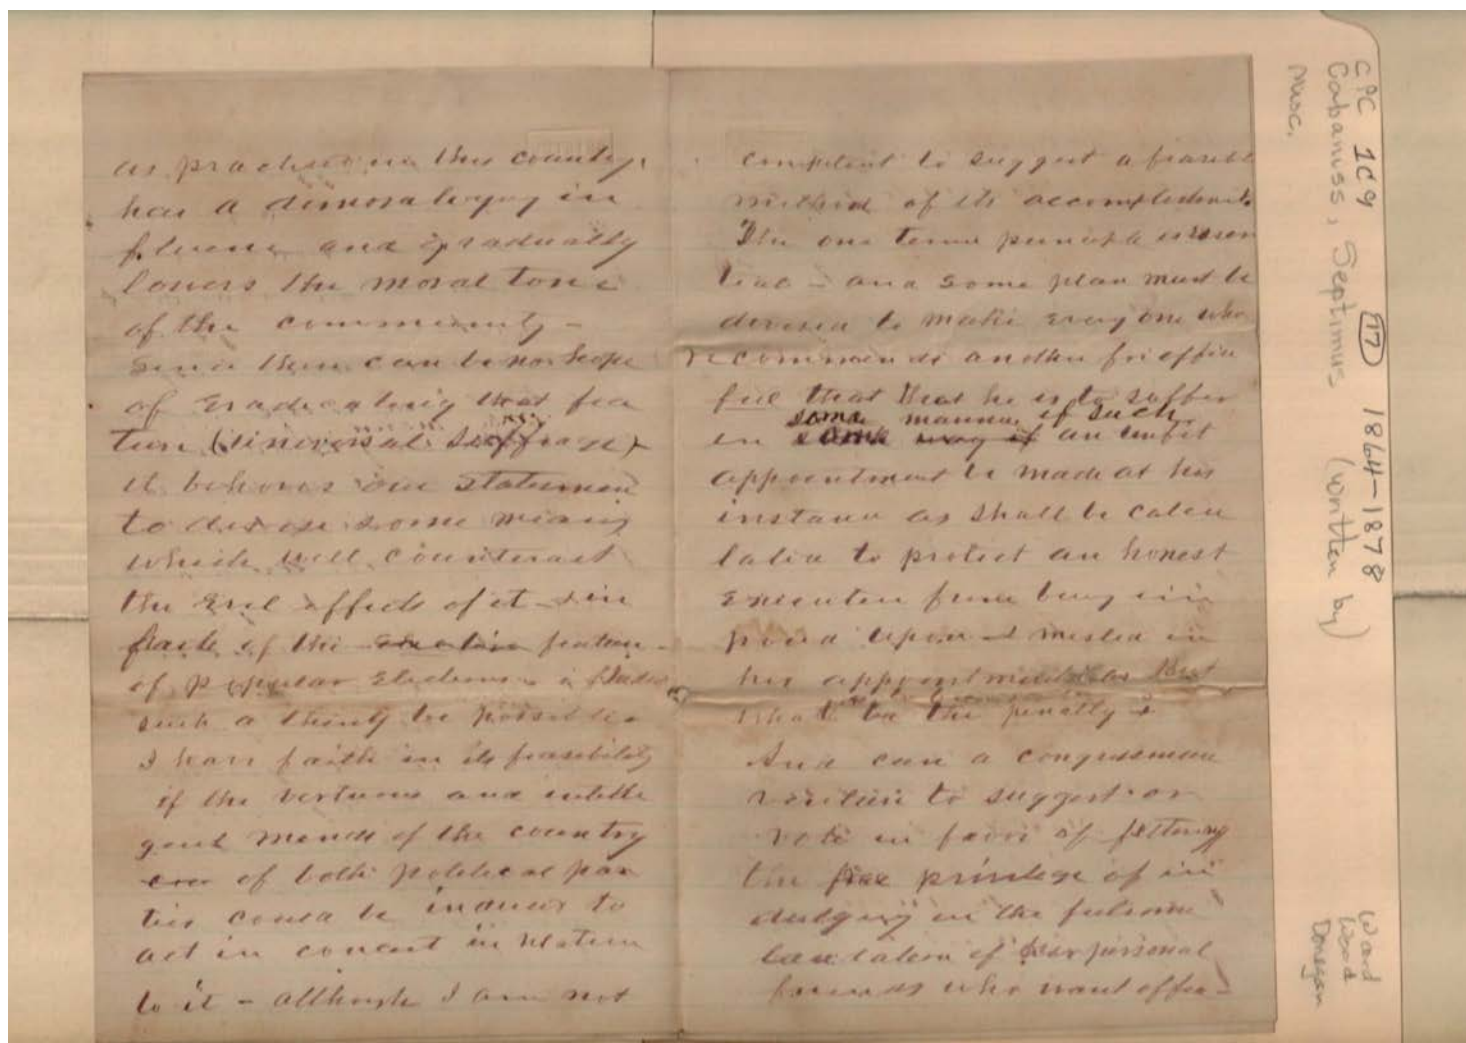 as practised in this country,
has a demoralizing in
fluence and gradually
lowers the moral tone
of the community –
Since there can be no hope
of eradicating that fea
ture (universal suffrage)
it behooves our statesmen
to devise some means
which will counteract
the evil effects of it – in
of the elective feature
of popular elections –
such a thing be possible
I have faith in its feasibility
if the virtuous and intelli
gent minds of the country
of both political par
ties could be induced to
act in concert in relation
to it – although I am not
competent to suggest a feasible
method of its accomplishment
The one term principle is essen
tial – and some plan must be
devised to make every one who
recommends another for office
feel that that he is to suffer
some manner if such
in some way if an unfit
appointment be made at his
instance as shall be calcu
lated to protect an honest
Executive from being im
posed upon & misled in
his appointments. But
what be the penalty &
And can a congressman
venture to suggest or
vote in favor of fettering
the free privilege of in
dulging in the fulsome
laudation of personal
friends who want office –
GPC 1C9 17 1864-1878
Cabaniss, Septimus (written by)
Misc.
Ward
Wood
Donegan